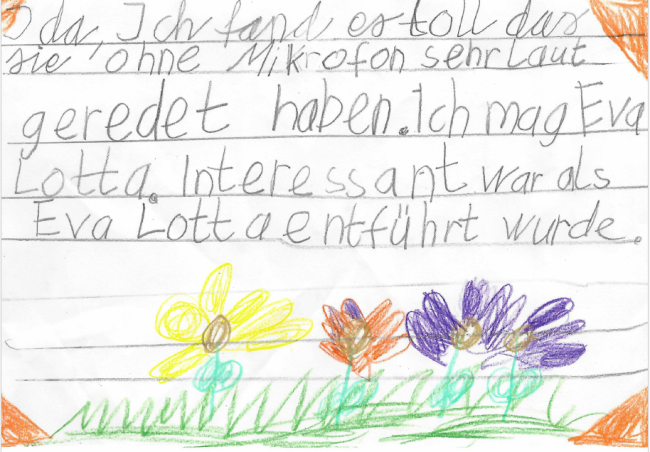 da, Ich fand es toll das
sie ohne Mikrofon sehr Laut
geredet haben. Ich mag Eva
Lotta. Interessant war als
Eva Lotta entführt wurde.